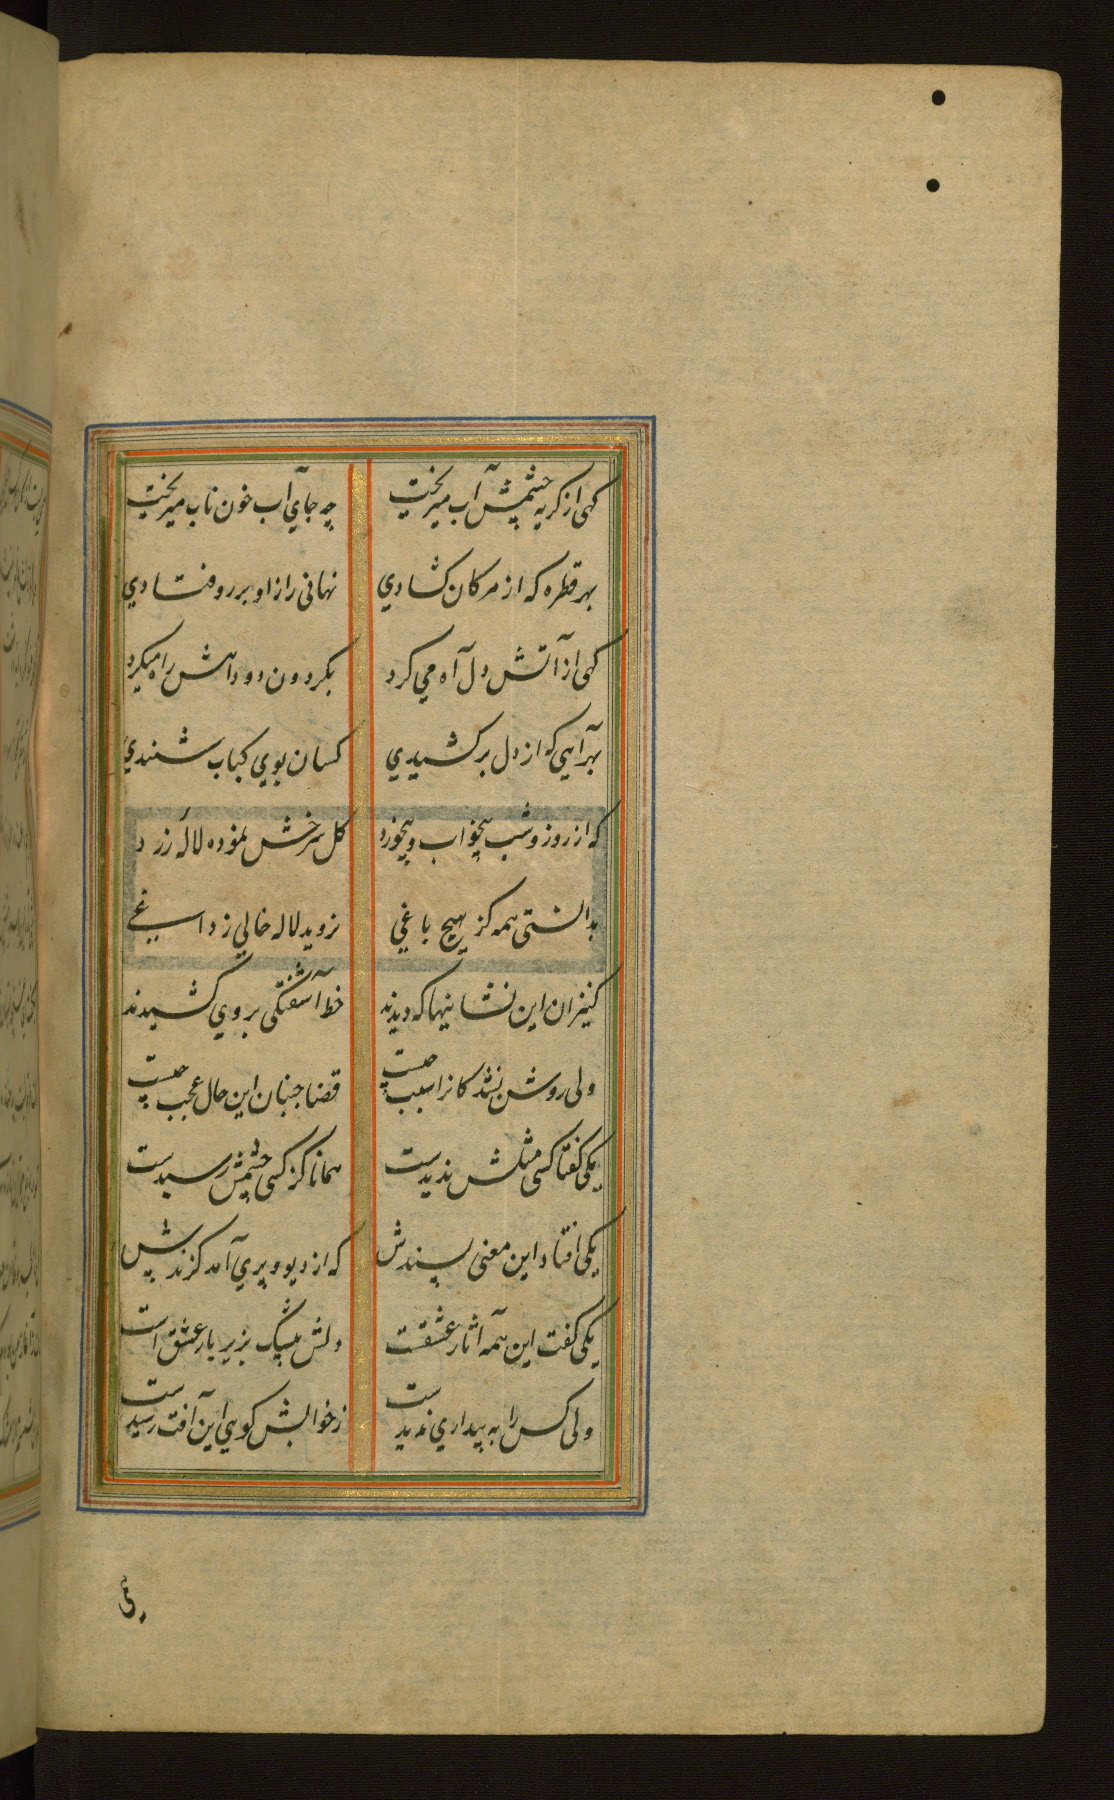 کهی از کریه چشمش آب میریخت چه جاي آب خون ناب میریخت
بهر قطره که از مرکان کشادي نهانی راز او بر رو فتادي
کهی از آتش دل آه می کرد بکردون دود اهش راه میکرد
بهر آهي که از دل بر کشیدي کسان بوي کباب شنیدي
که از روز و شب بیخواب و بیخورد کل سرخش نموده لالهٔ زرد
بدانستی همه کز هیچ باغي نروید لاله خالي ز داغے
کنیزان این نشانیها که دیدند خط آشفتکی بر وي کشیدند
ولی روشن نشد کانرا سبب چیست قضا جنبان این حال عجب چیست
یکی کفتا کسی مثلش ندیدست همانا کز کسی چشمش رسیدست
یکی افتاد این معنی پسندش که از دیو و پري آمد کزندش
یکی کفت این همه اثار عشقست دلش بیشک بزیر بار عشق است
ولی کس را به بیداري ندیدست ز خوابش کویي این آفت رسیدست